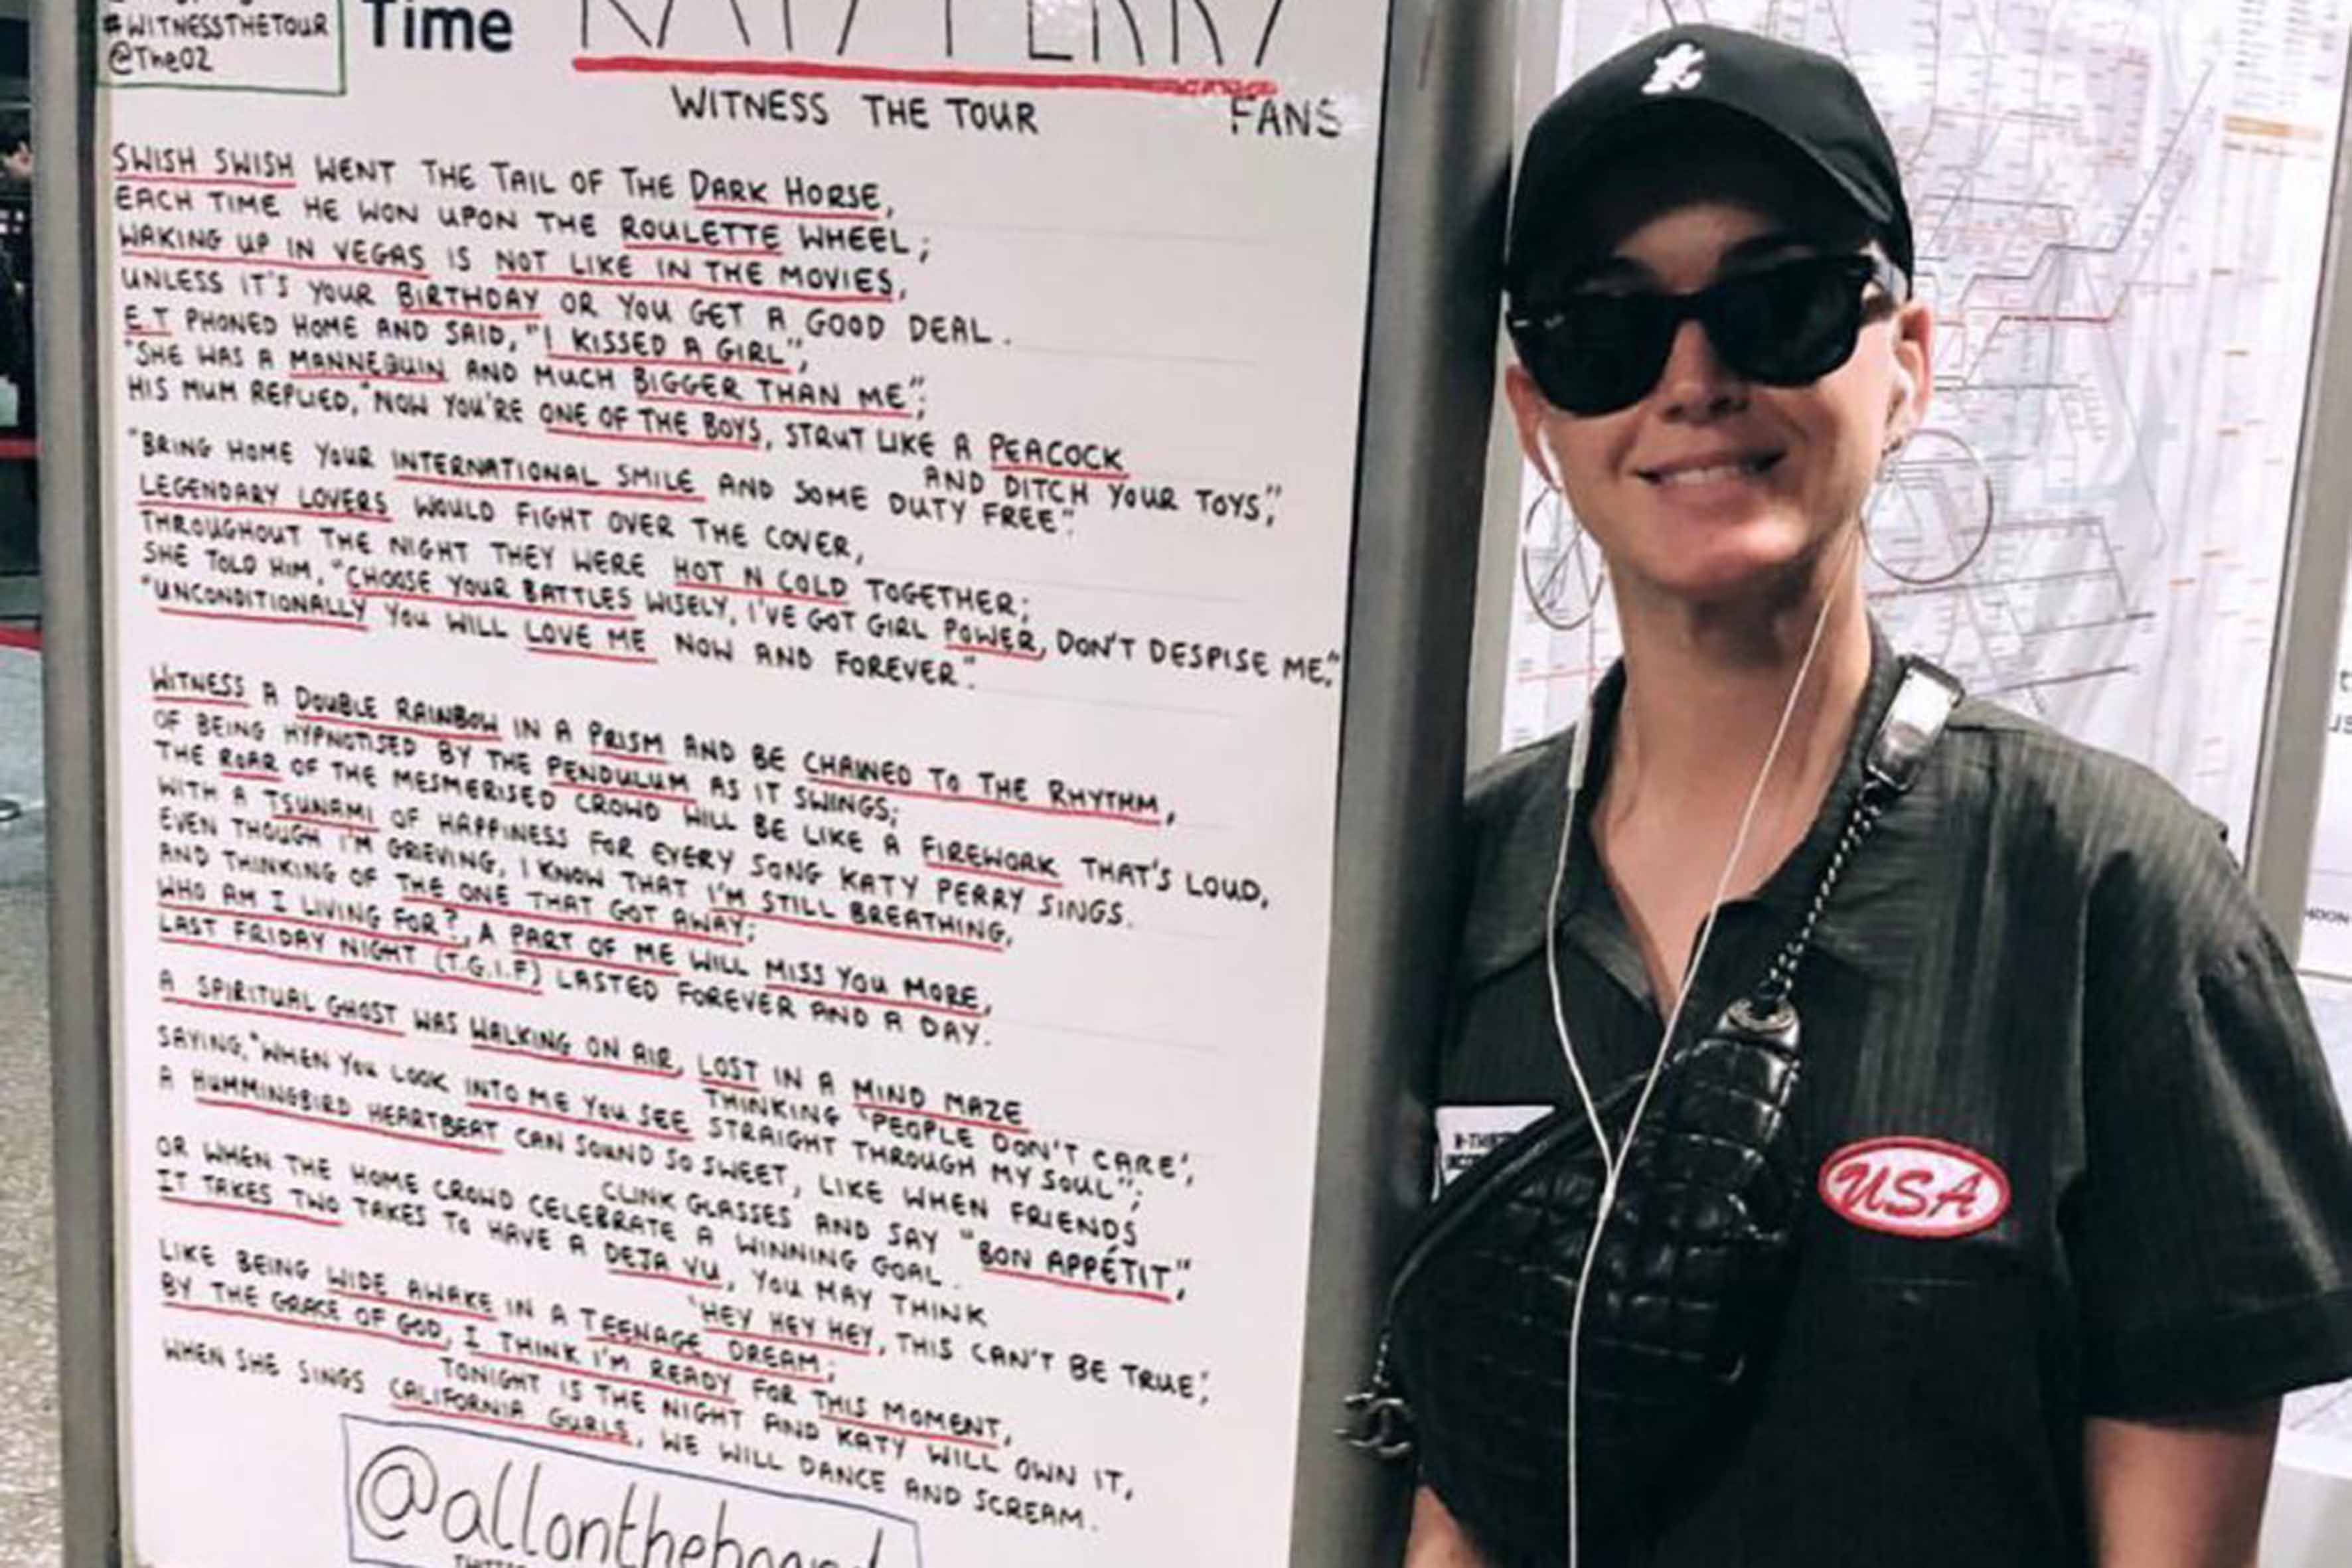 #WITNESSTHETOUR
@TheO2
Time
KATY PERRY
WITNESS THE TOUR
FANS
SWISH SWISH WENT THE TAIL OF THE DARK HORSE,
EACH TIME HE WON UPON THE ROULETTE WHEEL;
WAKING UP IN VEGAS IS NOT LIKE IN THE MOVIES,
UNLESS IT'S YOUR BIRTHDAY OR YOU GET A GOOD DEAL.
E.T PHONED HOME AND SAID, "I KISSED A GIRL",
"SHE WAS A MANNEQUIN AND MUCH BIGGER THAN ME";
HIS MUM REPLIED, "NOW YOU'RE ONE OF THE BOYS, STRUT LIKE A PEACOCK
AND DITCH YOUR TOYS,"
"BRING HOME YOUR INTERNATIONAL SMILE AND SOME DUTY FREE".
LEGENDARY LOVERS WOULD FIGHT OVER THE COVER,
THROUGHOUT THE NIGHT THEY WERE HOT N COLD TOGETHER;
SHE TOLD HIM, "CHOOSE YOUR BATTLES WISELY, I'VE GOT GIRL POWER, DON'T DESPISE ME,"
"UNCONDITIONALLY YOU WILL LOVE ME NOW AND FOREVER".
WITNESS A DOUBLE RAINBOW IN A PRISM AND BE CHAINED TO THE RHYTHM,
OF BEING HYPNOTISED BY THE PENDULUM AS IT SWINGS;
THE ROAR OF THE MESMERISED CROWD WILL BE LIKE A FIREWORK THAT'S LOUD,
WITH A TSUNAMI OF HAPPINESS FOR EVERY SONG KATY PERRY SINGS.
EVEN THOUGH I'M GRIEVING, I KNOW THAT I'M STILL BREATHING,
AND THINKING OF THE ONE THAT GOT AWAY;
WHO AM I LIVING FOR?, A PART OF ME WILL MISS YOU MORE,
LAST FRIDAY NIGHT (T.G.I.F) LASTED FOREVER AND A DAY.
A SPIRITUAL GHOST WAS WALKING ON AIR, LOST IN A MIND MAZE
THINKING 'PEOPLE DON'T CARE',
SAYING, "WHEN YOU LOOK INTO ME YOU SEE STRAIGHT THROUGH MY SOUL";
A HUMMINGBIRD HEARTBEAT CAN SOUND SO SWEET, LIKE WHEN FRIENDS
CLINK GLASSES AND SAY "BON APPÉTIT",
OR WHEN THE HOME CROWD CELEBRATE A WINNING GOAL.
IT TAKES TWO TAKES TO HAVE A DEJA VU, YOU MAY THINK
'HEY HEY HEY, THIS CAN'T BE TRUE',
LIKE BEING WIDE AWAKE IN A TEENAGE DREAM;
BY THE GRACE OF GOD, I THINK I'M READY FOR THIS MOMENT,
TONIGHT IS THE NIGHT AND KATY WILL OWN IT,
WHEN SHE SINGS CALIFORNIA GURLS, WE WILL DANCE AND SCREAM.
@allontheboard
USA